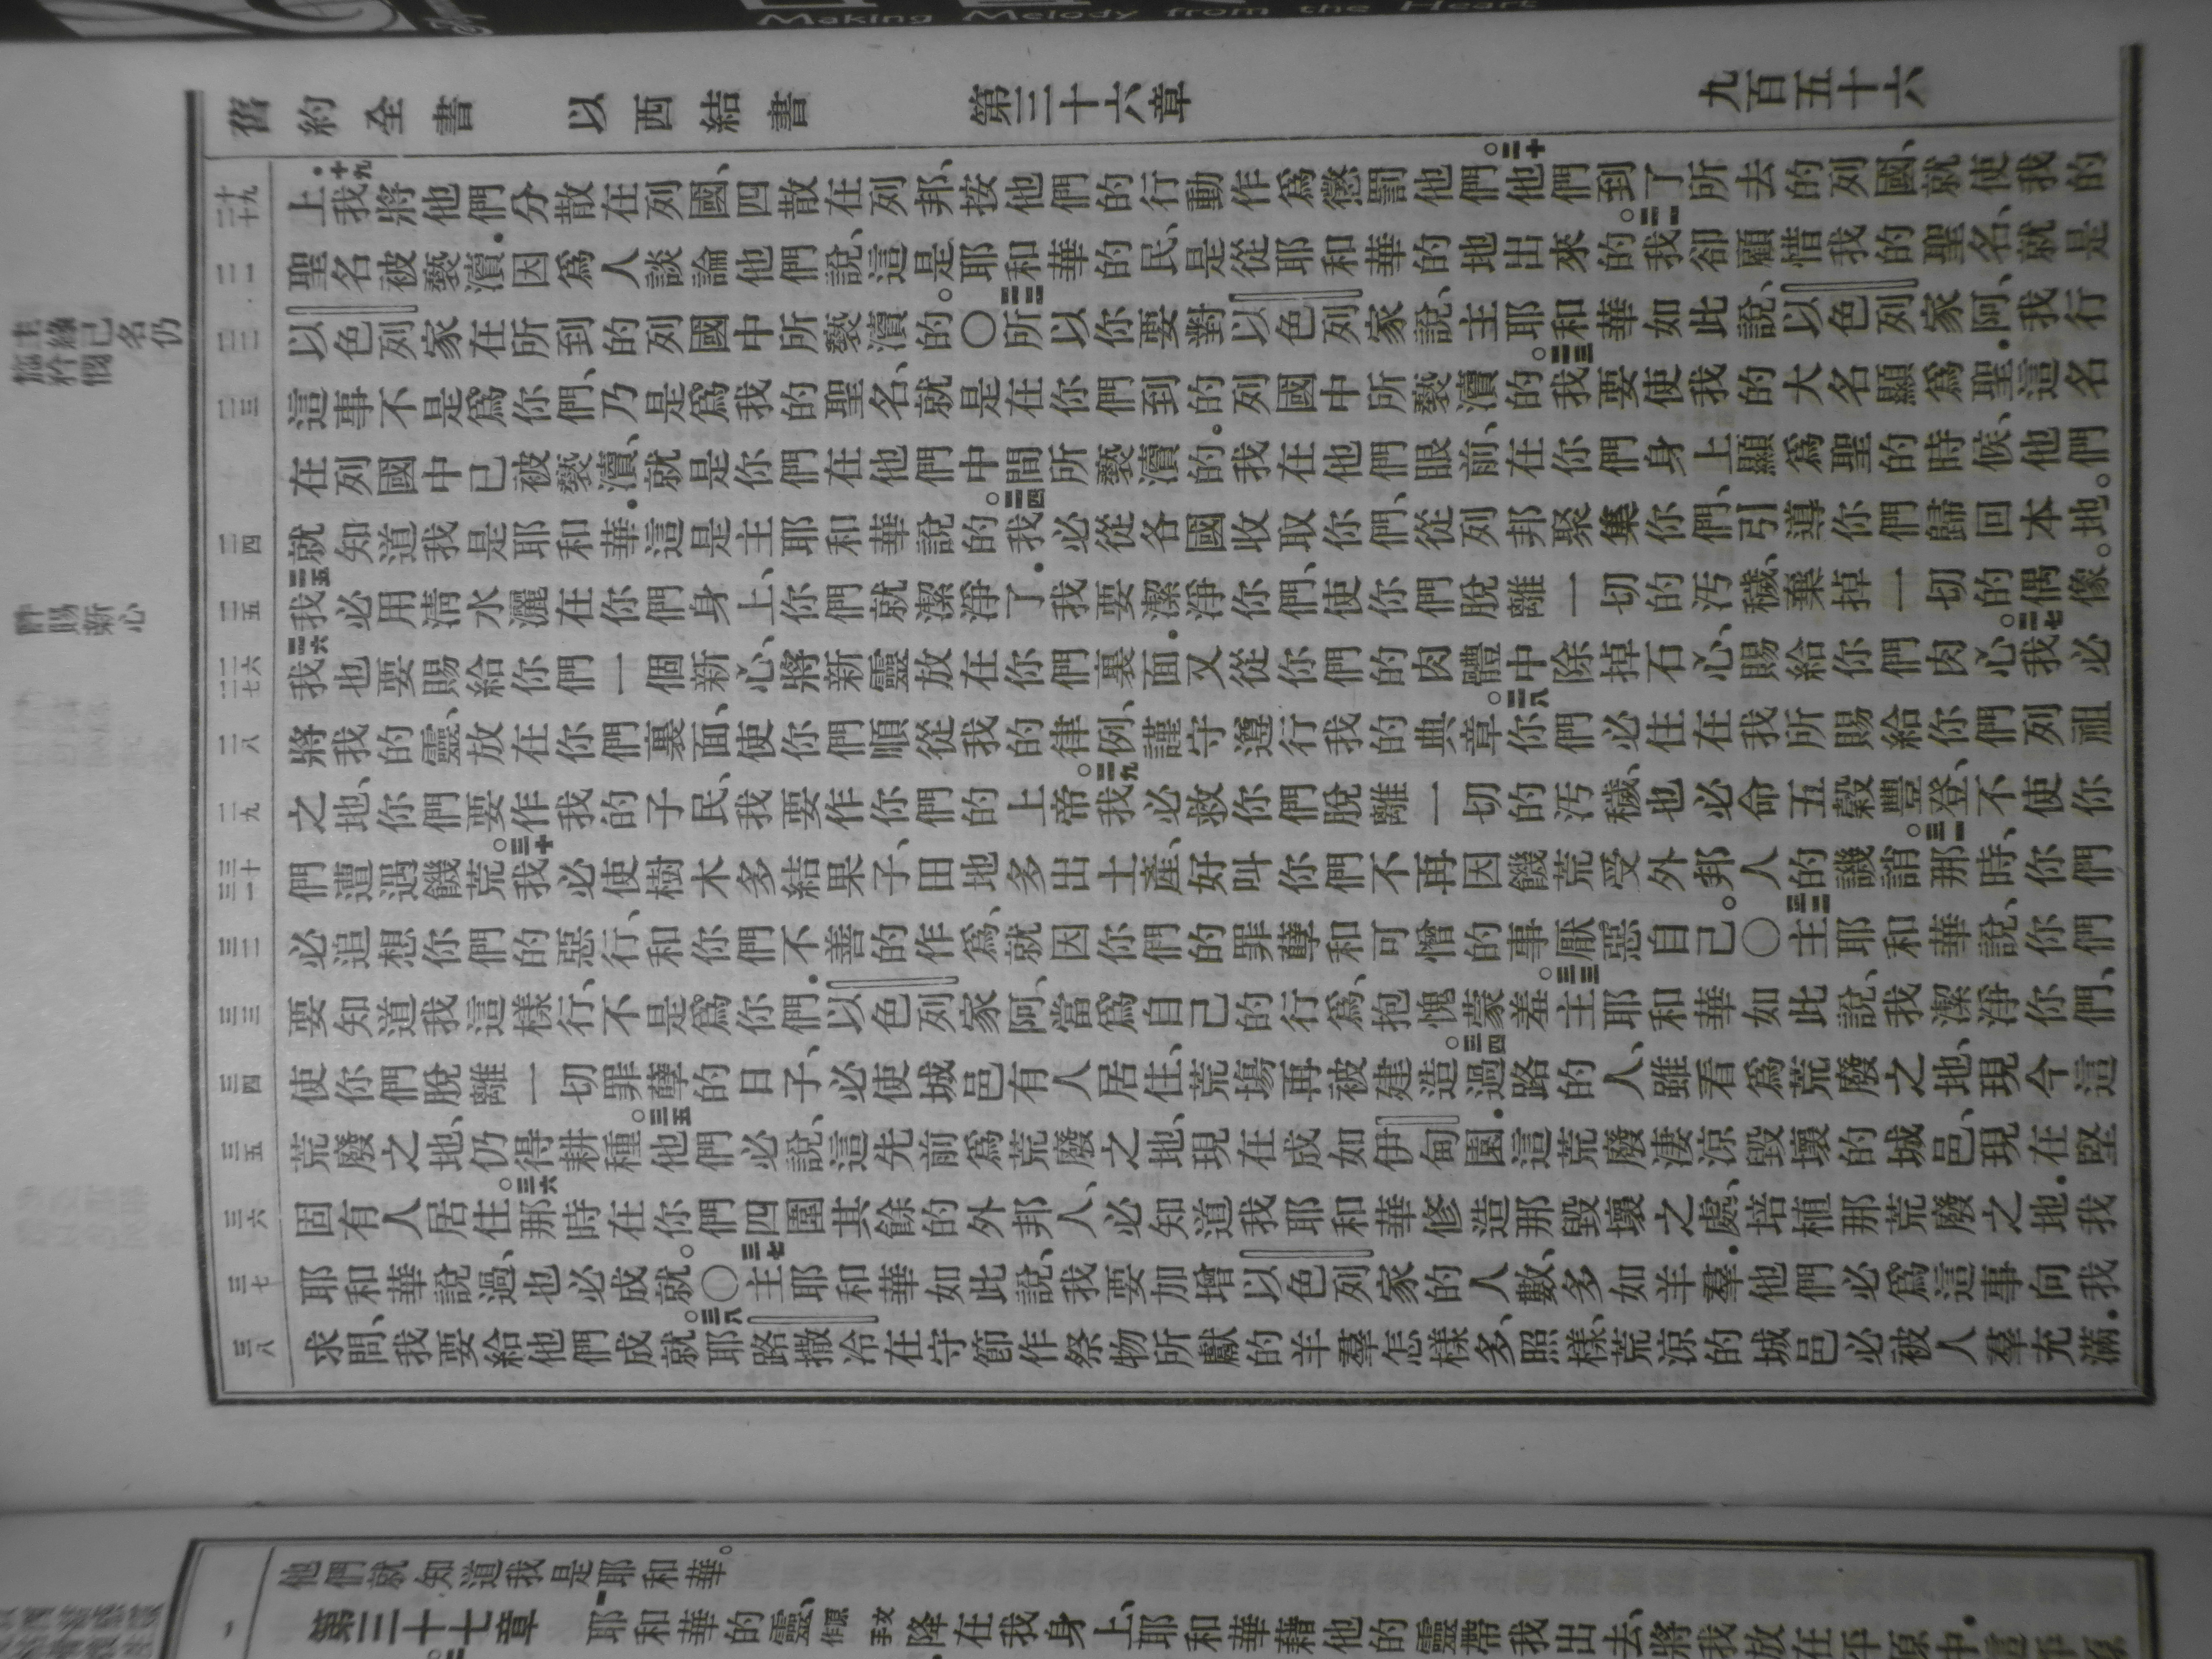 Making Melody from the Heart
舊約全書 以西結書 第三十六章 九百五十六
十九 二十
上．十九我將他們分散在列國、四散在列邦、按他們的行動作爲懲罰他們。二十他們到了所去的列國、就使我的
二一
聖名被褻瀆．因爲人談論他們說、這是耶和華的民、是從耶和華的地出來的。二一我卻顧惜我的聖名、就是
二二
以色列家在所到的列國中所褻瀆的。〇二二所以你要對以色列家說、主耶和華如此說、以色列家阿、我行
二三
這事不是爲你們、乃是爲我的聖名、就是在你們到的列國中所褻瀆的。二三我要使我的大名顯爲聖．這名
在列國中已被褻瀆、就是你們在他們中間所褻瀆的．我在他們眼前、在你們身上顯爲聖的時候、他們
二四
就知道我是耶和華．這是主耶和華說的。二四我必從各國收取你們、從列邦聚集你們、引導你們歸回本地。
二五
二五我必用清水灑在你們身上、你們就潔淨了．我要潔淨你們、使你們脫離一切的汚穢、棄掉一切的偶像。
二六 二七
二六我也要賜給你們一個新心、將新靈放在你們裏面．又從你們的肉體中除掉石心、賜給你們肉心。二七我必
二八
將我的靈、放在你們裏面、使你們順從我的律例、謹守遵行我的典章。二八你們必住在我所賜給你們列祖
二九
之地、你們要作我的子民、我要作你們的上帝。二九我必救你們脫離一切的汚穢、也必命五穀豐登、不使你
三十 三一
們遭遇饑荒。三十我必使樹木多結果子、田地多出土產、好叫你們不再因饑荒受外邦人的譏誚。三一那時、你們
三二
必追想你們的惡行、和你們不善的作爲、就因你們的罪孽和可憎的事厭惡自己。〇三二主耶和華說、你們
三三
要知道我這樣行、不是爲你們．以色列家阿、當爲自己的行爲、抱愧蒙羞。三三主耶和華如此說、我潔淨你們、
三四
使你們脫離一切罪孽的日子、必使城邑有人居住、荒塲再被建造。三四過路的人、雖看爲荒廢之地、現今這
三五
荒廢之地、仍得耕種。三五他們必說、這先前爲荒廢之地、現在成如伊甸園．這荒廢淒涼毀壞的城邑、現在堅
三六
固有人居住。三六那時在你們四圍其餘的外邦人、必知道我耶和華修造那毀壞之處、培植那荒廢之地．我
三七
耶和華說過、也必成就。〇三七主耶和華如此說、我要加增以色列家的人數、多如羊羣．他們必爲這事向我
三八
求問、我要給他們成就。三八耶路撒冷在守節作祭物所獻的羊羣怎樣多、照樣、荒涼的城邑必被人羣充滿．
主緣己名仍
賜新心
他們就知道我是耶和華。
一
第三十七章 一耶和華的靈、原文作手降在我身上、耶和華藉他的靈帶我出去、將我放在平原中．